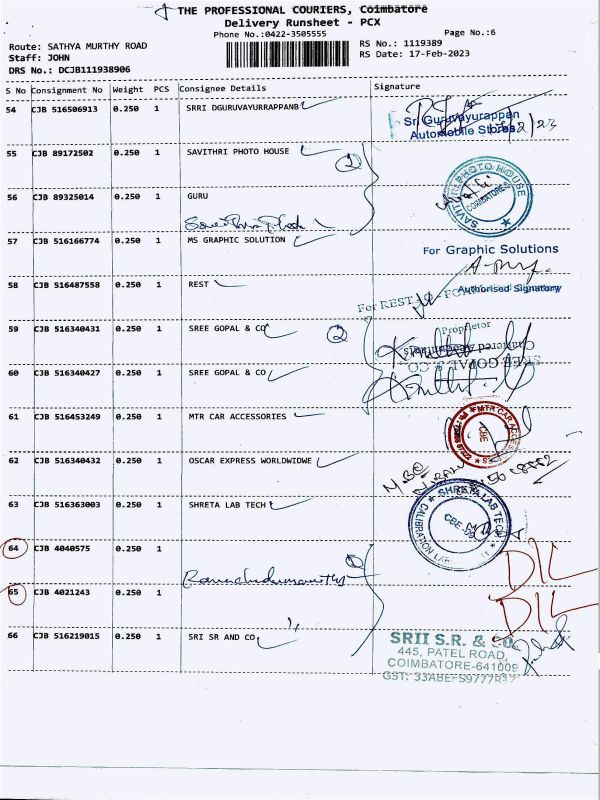 THE PROFESSIONAL COURIERS, Coimbatore
Delivery Runsheet - PCX
Phone No.:0422-3505555
Page No.:6
Route: SATHYA MURTHY ROAD
RS No.: 1119389
Staff: JOHN
RS Date: 17-Feb-2023
DRS No.: DCJB111938906
S No Consignment No Weight PCS Consignee Details Signature
54 CJB 516506913 0.250 1 SRRI DGURUVAYURRAPPANB
Sri Guruvayurappan
Automobile Stores
55 CJB 89172502 0.250 1 SAVITHRI PHOTO HOUSE
2
SAVITHRI PHOTO HOUSE
COIMBATORE
56 CJB 89325014 0.250 1 GURU
57 CJB 516166774 0.250 1 MS GRAPHIC SOLUTION
For Graphic Solutions
58 CJB 516487558 0.250 1 REST
Authorised Signatory
For REST
59 CJB 516340431 0.250 1 SREE GOPAL & CO
2
Proprietor
Chartered Accountants
SREE GOPAL & CO
60 CJB 516340427 0.250 1 SREE GOPAL & CO
61 CJB 516453249 0.250 1 MTR CAR ACCESSORIES
MTR CAR ACCESS
CBE
62 CJB 516340432 0.250 1 OSCAR EXPRESS WORLDWIDWE
63 CJB 516363003 0.250 1 SHRETA LAB TECH
SHRETA LAB TECH
CALIBRATION LAB
CBE
64 CJB 4040575 0.250 1
DIL
65 CJB 4021243 0.250 1
DIL
66 CJB 516219015 0.250 1 SRI SR AND CO
SRII S.R. & CO.
445, PATEL ROAD,
COIMBATORE-641009